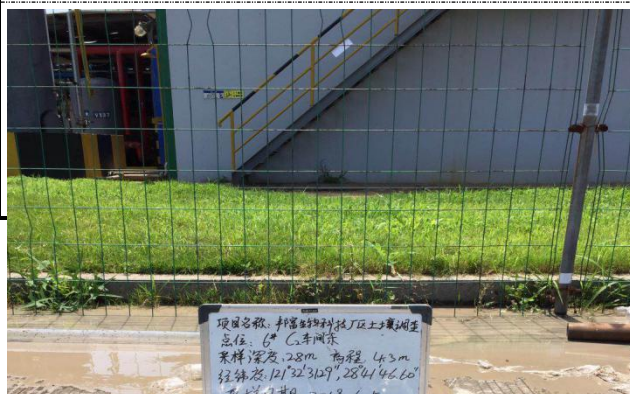 项目名称: 邦富生物科技厂区土壤调查
点位: 6# C车间东
采样深度: 28m 高程 4.3m
经纬度: 121°32'31.29", 28°41'46.60"